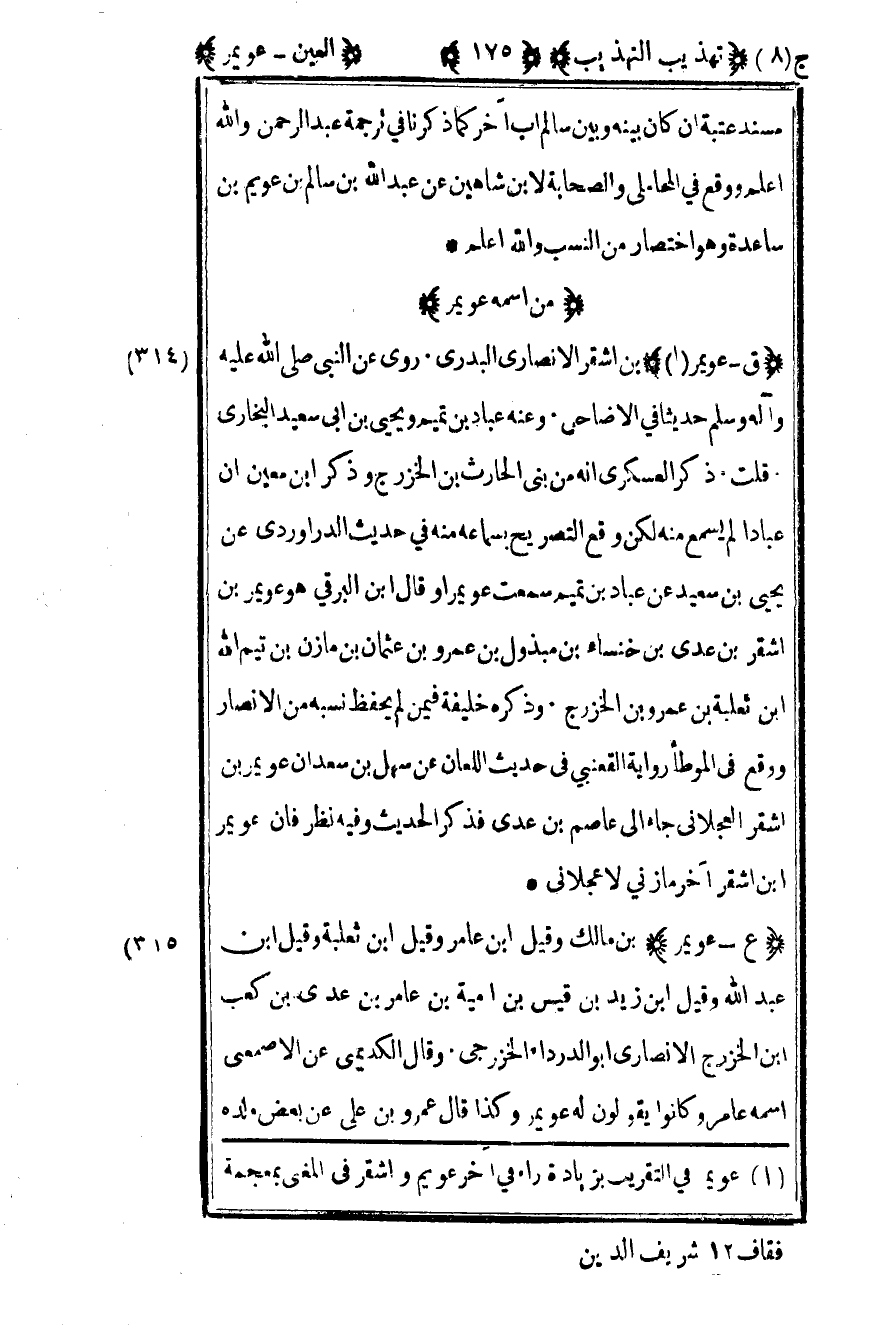 ج(٨) ﴿تهذيب التهذيب﴾ ﴿١٧٥﴾ ﴿العين - عويمر﴾
مسند عتبة ان كان بينه وبين سالم اب آخر كما ذكرنا في ترجمة عبد الرحمن والله
اعلم ووقع في المحاملى والصحابة لابن شاهين عن عبد الله بن سالم بن عويم بن
ساعدة وهو اختصار من النسب والله اعلم •
﴿من اسمه عويمر﴾
﴿ق - عويمر(١)﴾ بن اشقر الانصارى البدرى · روى عن النبي صلى الله عليه (٣١٤)
وآله وسلم حديثا في الاضاحى · وعنه عباد بن تميم ويحيى بن ابى سعيد البخارى
· قلت · ذكر العسكرى انه من بنى الحارث بن الخزرج وذكر ابن معين ان
عبادا لم يسمع منه لكن وقع التصريح بسماعه منه في حديث الدراوردى عن
يحيى بن سعيد عن عباد بن تميم سمعت عويمرا وقال ابن البرقي هو عويمر بن
اشقر بن عدى بن خنساء بن مبذول بن عمرو بن عثمان بن مازن بن تيم الله
ابن ثعلبة بن عمرو بن الخزرج · وذكره خليفة فيمن لم يحفظ نسبه من الانصار
ووقع فى الموطأ رواية القعنبي فى حديث اللعان عن سهل بن سعد ان عويمر بن
اشقر العجلانى جاء الى عاصم بن عدى فذكر الحديث وفيه نظر فان عويمر
ابن اشقر آخر مازني لا عجلانى •
﴿ع - عويمر﴾ بن مالك وقيل ابن عامر وقيل ابن ثعلبة وقيل ابن (٣١٥
عبد الله وقيل ابن زيد بن قيس بن امية بن عامر بن عدى بن كعب
ابن الخزرج الانصارى ابو الدرداء الخزرجى · وقال الكديمى عن الاصمعى
اسمه عامر وكانوا يقولون له عويمر وكذا قال عمرو بن على عن بعض ولده
(١) عويمر في التقريب بزيادة راء في آخر عويم واشقر فى المغى بمعجمة
فقاف ١٢ شريف الدين